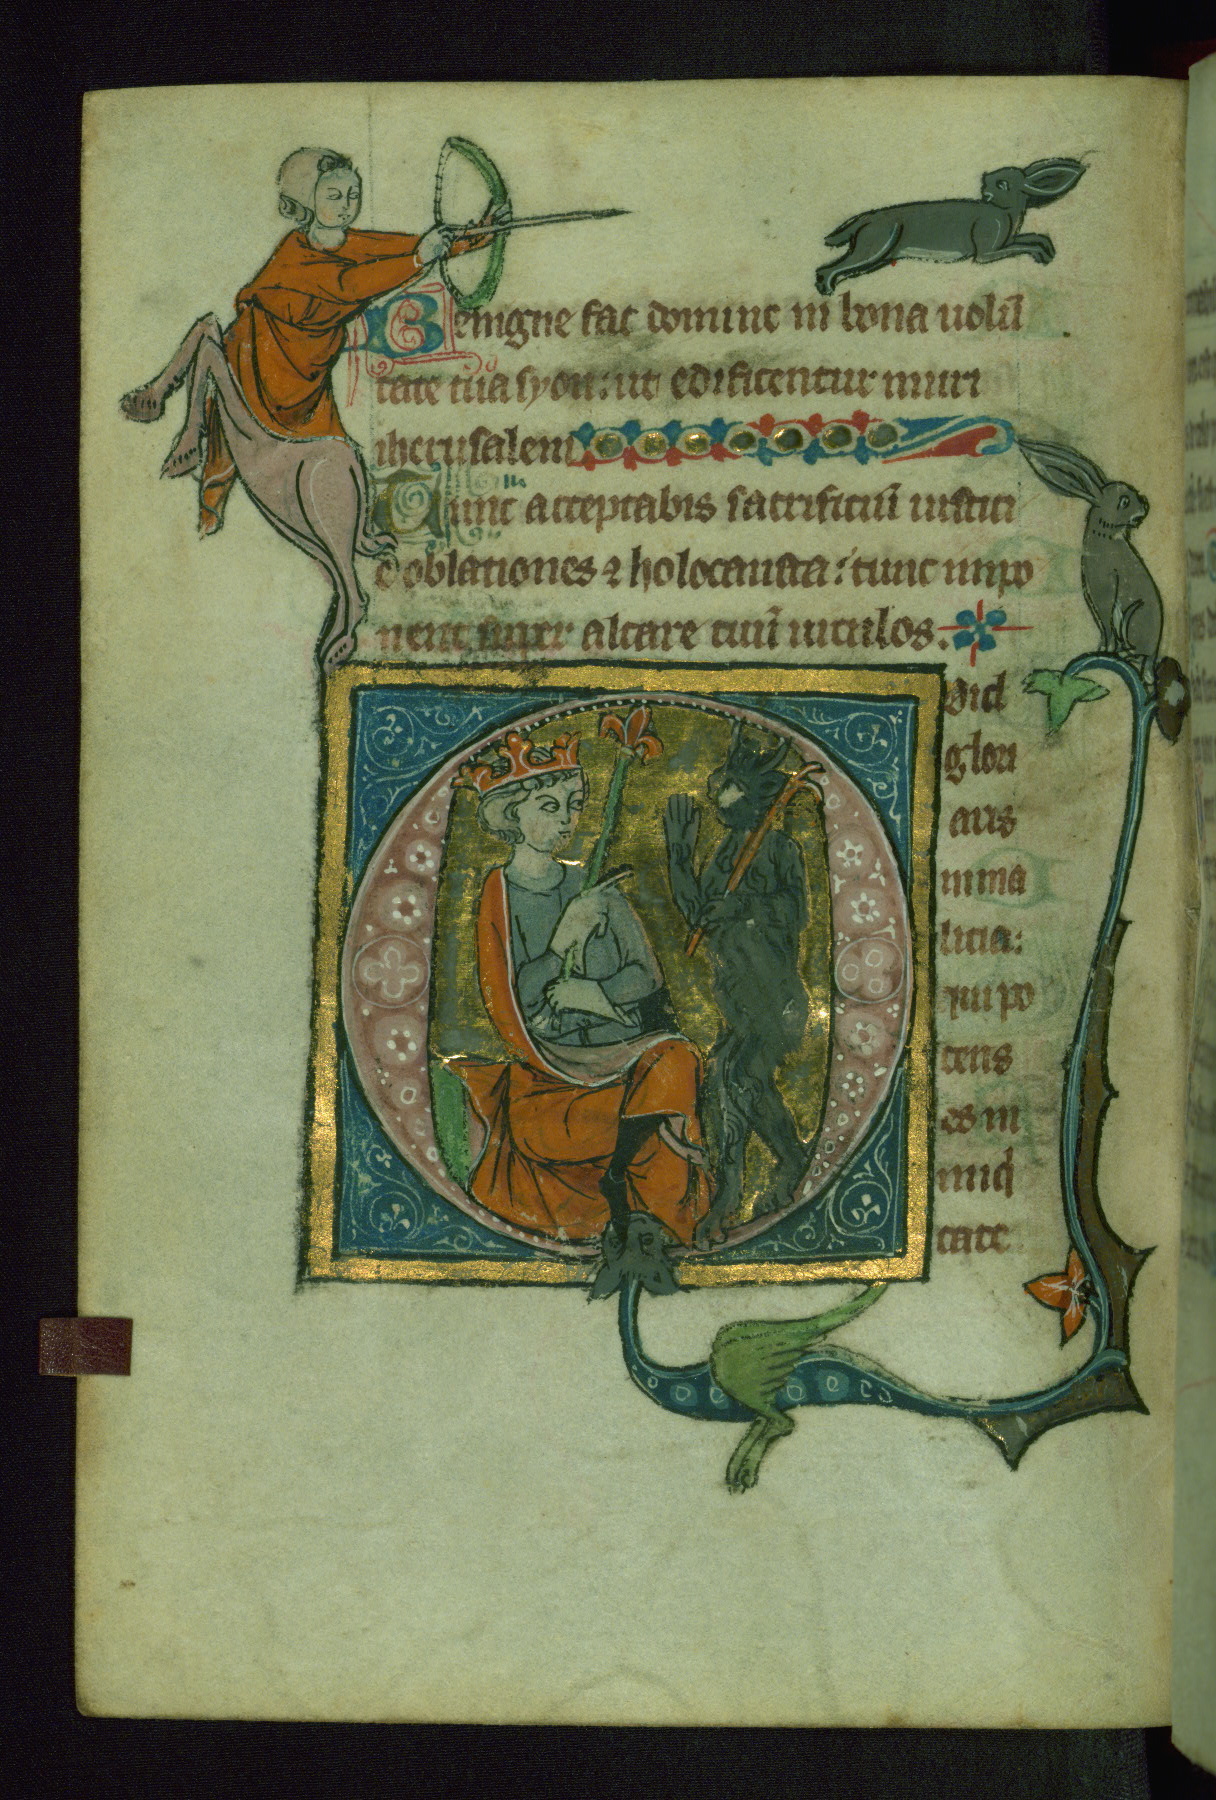 Benigne fac domine in bona uolū
tate tua syon: ut edificentur muri
iherusalem
Tunc acceptabis sacrificiū iustici
e oblationes ⁊ holocausta: tunc inpo
nent super altare tuū uitulos.
Quid
glori
aris
in ma
licia:
qui po
tens
es in
iniq̄
tate